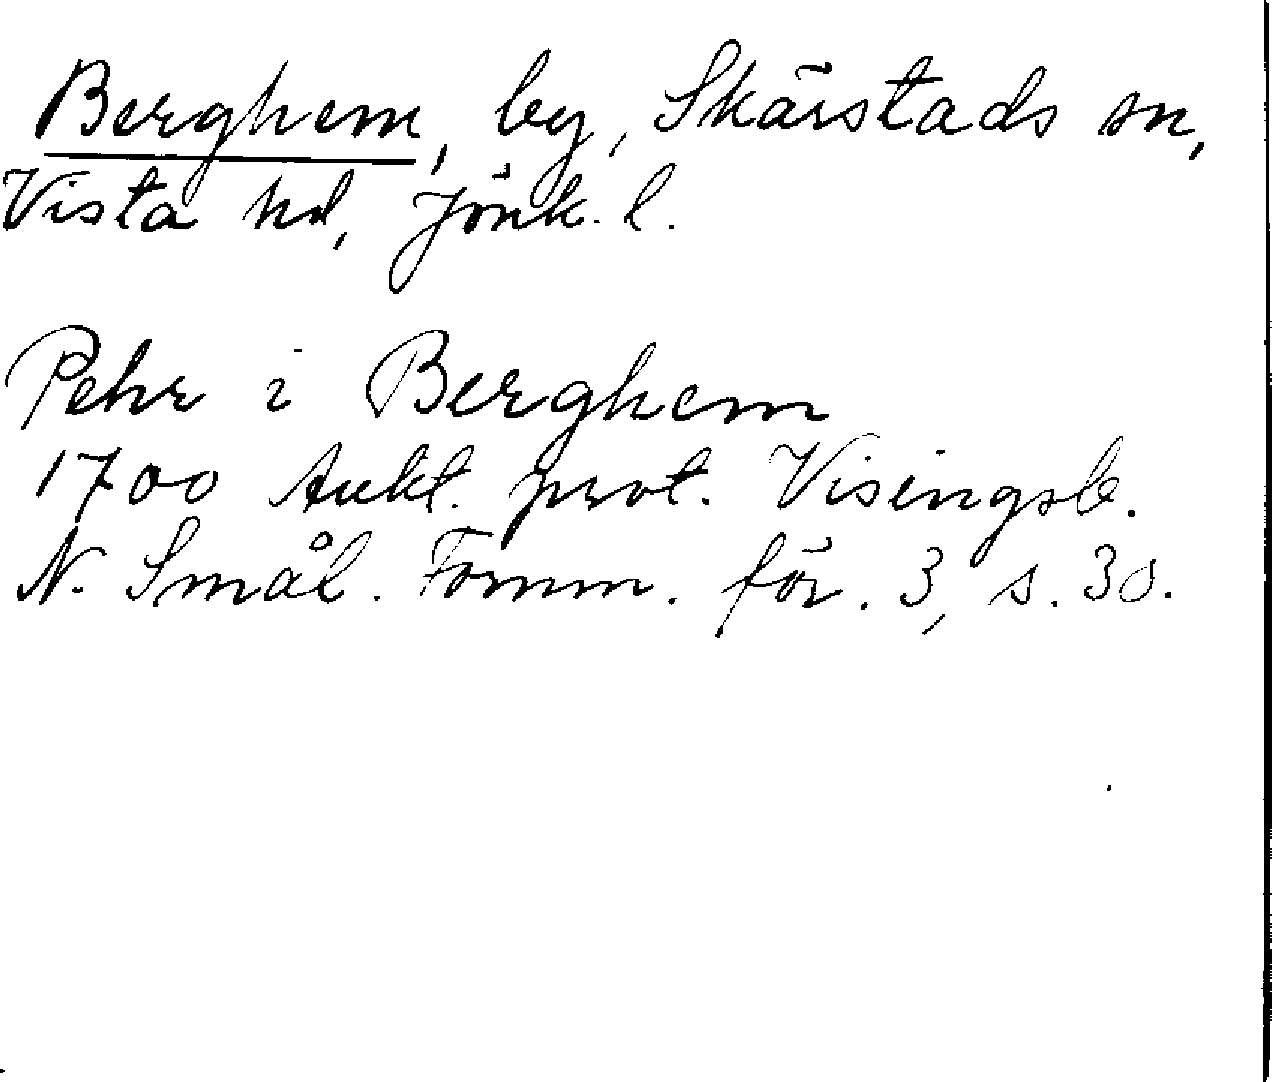 Berghem, by, Skärstads sn,
Vista hd, Jönk. l.
Pehr i Berghem
1700 Aukt. prot. Visingsb.
N. Smål. Fornm. för. 3, s. 30.